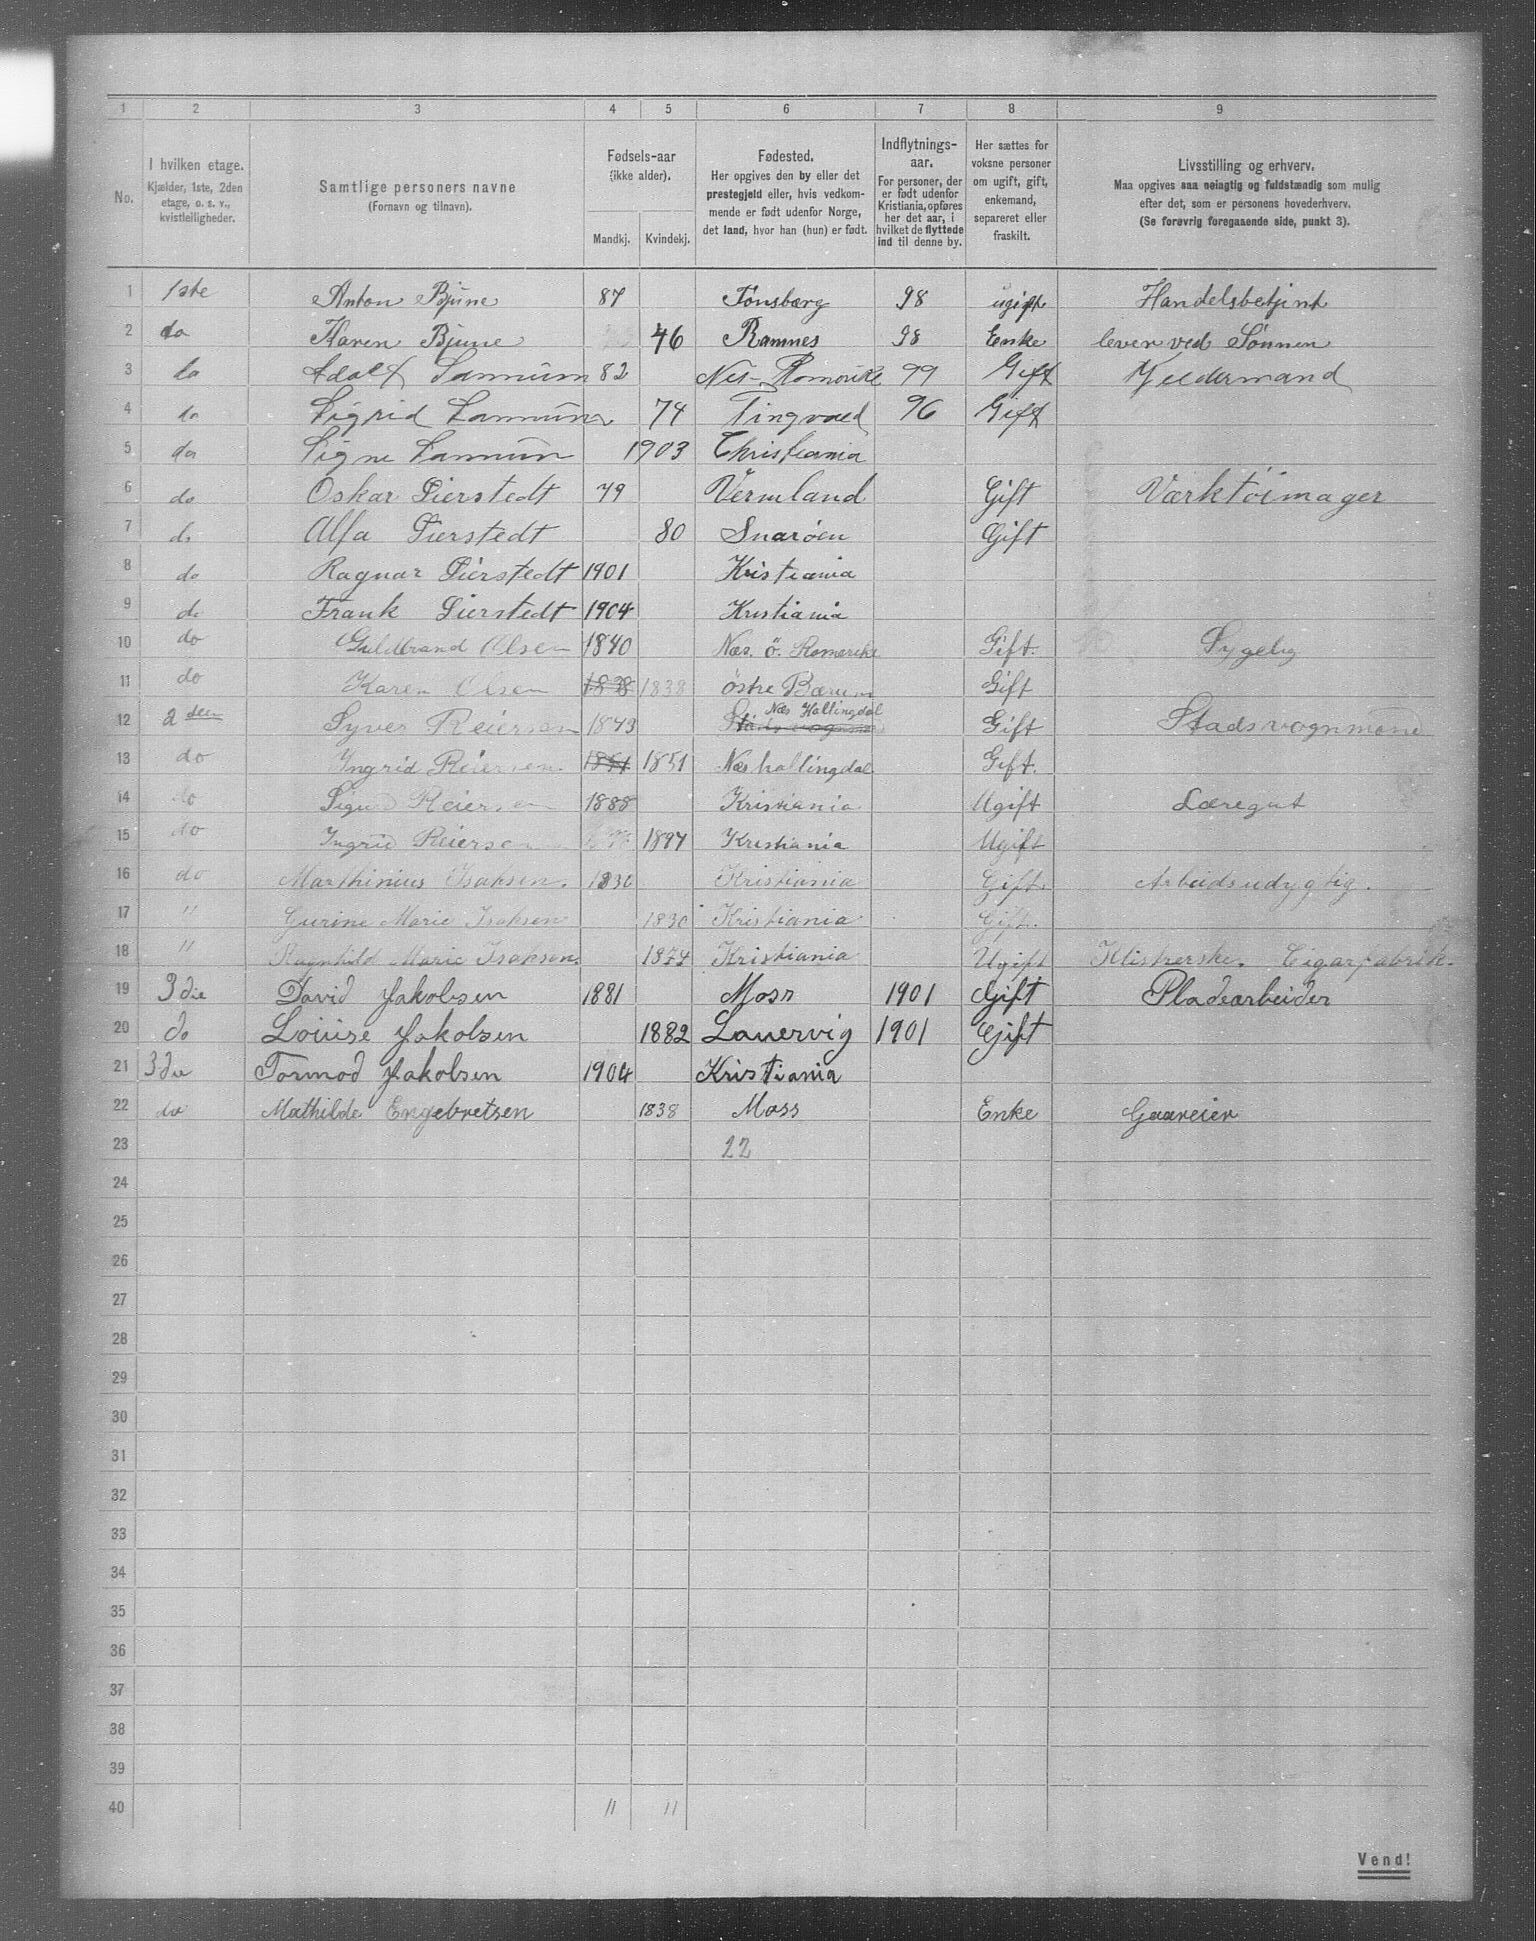 1 2 3 4 5 6 7 8 9
No. I hvilken etage. Kjælder, 1ste, 2den etage, o. s. v., kvistleiligheder. Samtlige personers navne (Fornavn og tilnavn). Fødsels-aar (ikke alder). Mandkj. Kvindekj. Fødested. Her opgives den by eller det prestegjeld eller, hvis vedkommende er født udenfor Norge, det land, hvor han (hun) er født. Indflytnings-aar. For personer, der er født udenfor Kristiania, opføres her det aar, i hvilket de flyttede ind til denne by. Her sættes for voksne personer om ugift, gift, enkemand, separeret eller fraskilt. Livsstilling og erhverv. Maa opgives saa nøiagtig og fuldstændig som mulig efter det, som er personens hovederhverv. (Se forøvrig foregaaende side, punkt 3).
1 1ste Anton Bjune 87 Tønsberg 98 ugift Handelsbetjent
2 do Karen Bjune 46 Ramnes 98 Enke lever ved Sønnen
3 do Adolf Sannum 82 Nes-Romerike 99 Gift
4 do Sigrid Sannum 74 Tingvold 96 Gift
5 do Signe Sannum 1903 Christiania
6 do Oskar Pierstedt 79 Vermland Gift Værktøimager
7 do Alfa Pierstedt 80 Snarøen Gift
8 do Ragnar Pierstedt 1901 Kristiania
9 do Frank Pierstedt 1904 Kristiania
10 do Guldbrand Olsen 1840 Næs. Ö. Romerike Gift. Sygelig
11 do Karen Olsen 1838 1838 östre Bærum Gift
12 2den Syver Reiersen 1843 Næs Hallingdal Gift Stadsvognmand
13 do Ingrid Reiersen 1851 1851 Næs hallingdal Gift.
14 do Sigurd Reiersen 1888 Kristiania Ugift Læregut
15 do Ingrid Reiersen 1897 Kristiania Ugift
16 do Marthinius Isaksen. 1830 Kristiania Gift. Arbeidsudygtig.
17 " Gurine Marie Isaksen 1830 Kristiania Gift.
18 " Ragnhild Marie Isaksen. 1874 Kristiania Ugift Klistrerske. Cigarfabrik.
19 3die David Jakobsen 1881 Moss 1901 Gift Pladearbeider
20 do Louise Jakobsen 1882 Laurvig 1901 Gift
21 3die Tormod Jakobsen 1904 Kristiania
22 do Mathilde Engebretsen 1838 Moss Enke Gaareier
23 22
24
25
26
27
28
29
30
31
32
33
34
35
36
37
38
39
40 11 11
Vend!